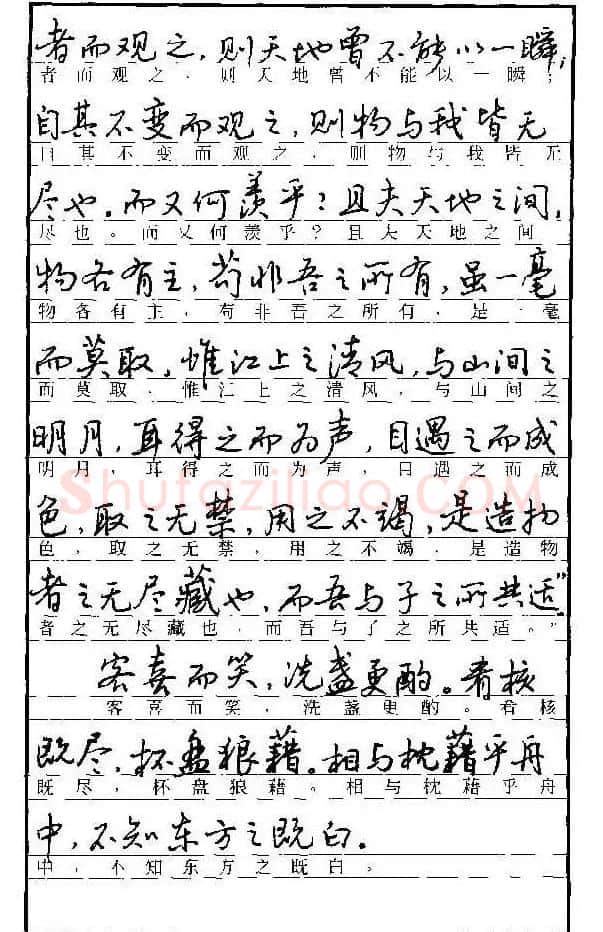 者而观之，则天地曾不能以一瞬；
者而观之，则天地曾不能以一瞬；
自其不变而观之，则物与我皆无
自其不变而观之，则物与我皆无
尽也。而又何羡乎？且夫天地之间，
尽也。而又何羡乎？且夫天地之间
物各有主，苟非吾之所有，虽一毫
物各有主，苟非吾之所有，是一毫
而莫取，惟江上之清风，与山间之
而莫取，惟江上之清风，与山间之
明月，耳得之而为声，目遇之而成
明月，耳得之而为声，目遇之而成
Shufaziliao.COM
色，取之无禁，用之不竭，是造物
色，取之无禁，用之不竭，是造物
者之无尽藏也，而吾与子之所共适”
者之无尽藏也，而吾与子之所共适。”
客喜而笑，洗盏更酌。肴核
客喜而笑，洗盏更酌。肴核
既尽，杯盘狼藉。相与枕藉乎舟
既尽，杯盘狼藉。相与枕藉乎舟
中，不知东方之既白。
中，不知东方之既白。